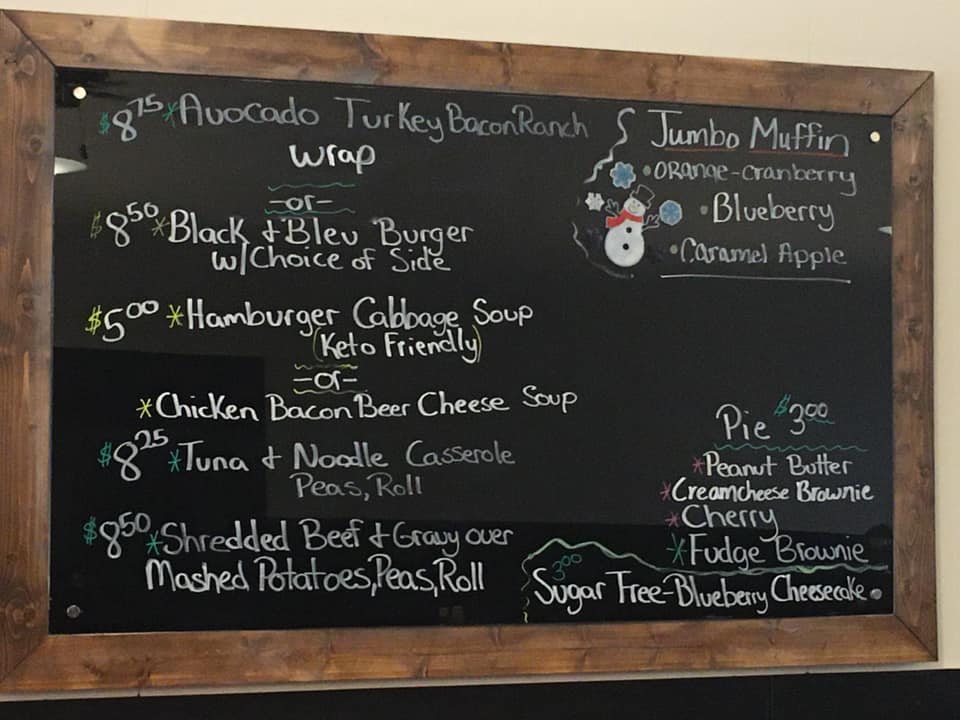 $8.75 *Avocado Turkey Bacon Ranch
Wrap
-or-
$8.50 *Black & Bleu Burger
w/Choice of Side
$5.00 *Hamburger Cabbage Soup
(Keto Friendly)
-or-
*Chicken Bacon Beer Cheese Soup
$8.25 *Tuna & Noodle Casserole
Peas, Roll
$8.50 *Shredded Beef & Gravy over
Mashed Potatoes, Peas, Roll
Jumbo Muffin
•Orange-cranberry
•Blueberry
•Caramel Apple
Pie $3.00
*Peanut Butter
*Creamcheese Brownie
*Cherry
*Fudge Brownie
3.00
Sugar Free-Blueberry Cheesecake